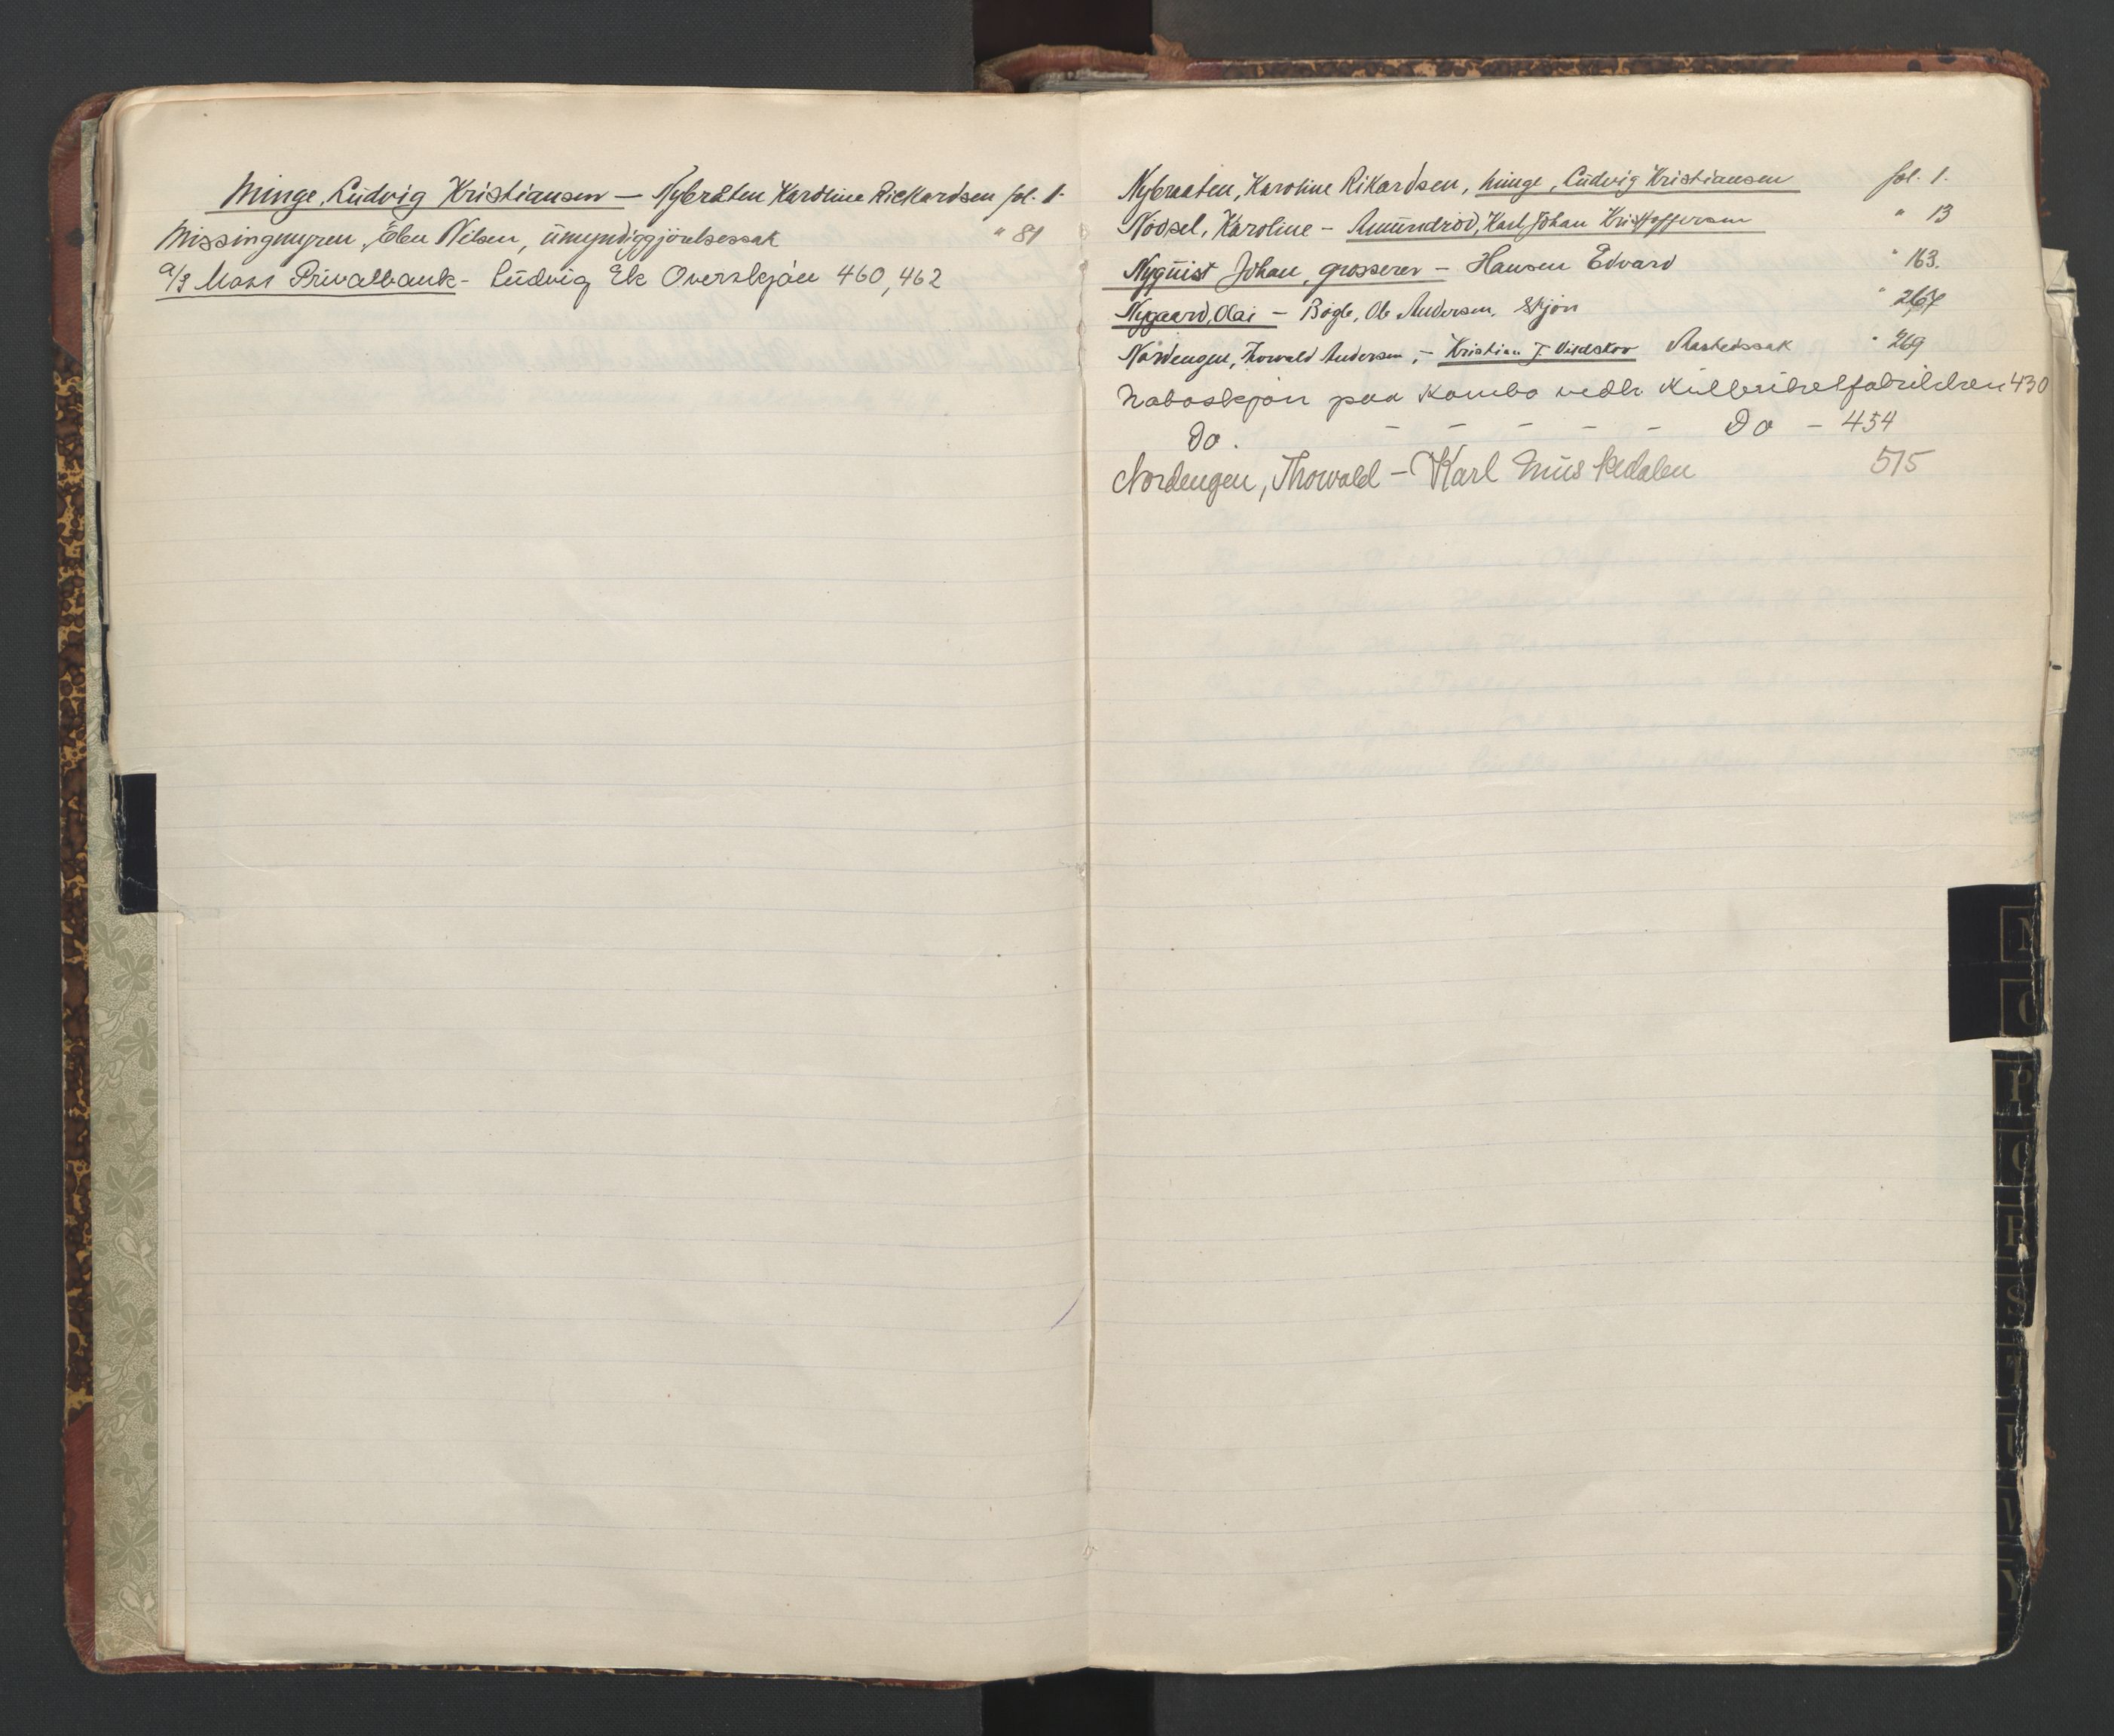 Minge, Ludvig Kristiansen — Nybråten Karoline Rickardsen fol. 1.
Missingmyren, Elen Nilsen, umyndiggjörelsessak " 81
A/S Moss Privatbank - Ludvig Ek Overskjön 460, 462
Nybraaten, Karoline Rikardsen, Minge, Ludvig Kristiansen fol. 1.
Nodsel, Karoline - Amundröd, Karl Johan Kristoffersen " 13
Nyquist Johan, grosserer - Hansen Edvard " 163.
Nygaard, Olai - Bögle, Ole Andersen. Skjön " 267
Nordengen, Thorvald Andersen, - Kristian J. Aastedssak " 269
Naboskjön paa Kambo vedk 430
Do. - - - - - Do - 454
Nordengen, Thorvald - Karl 515
N
O
P
Q
R
S
T
U
V
Y